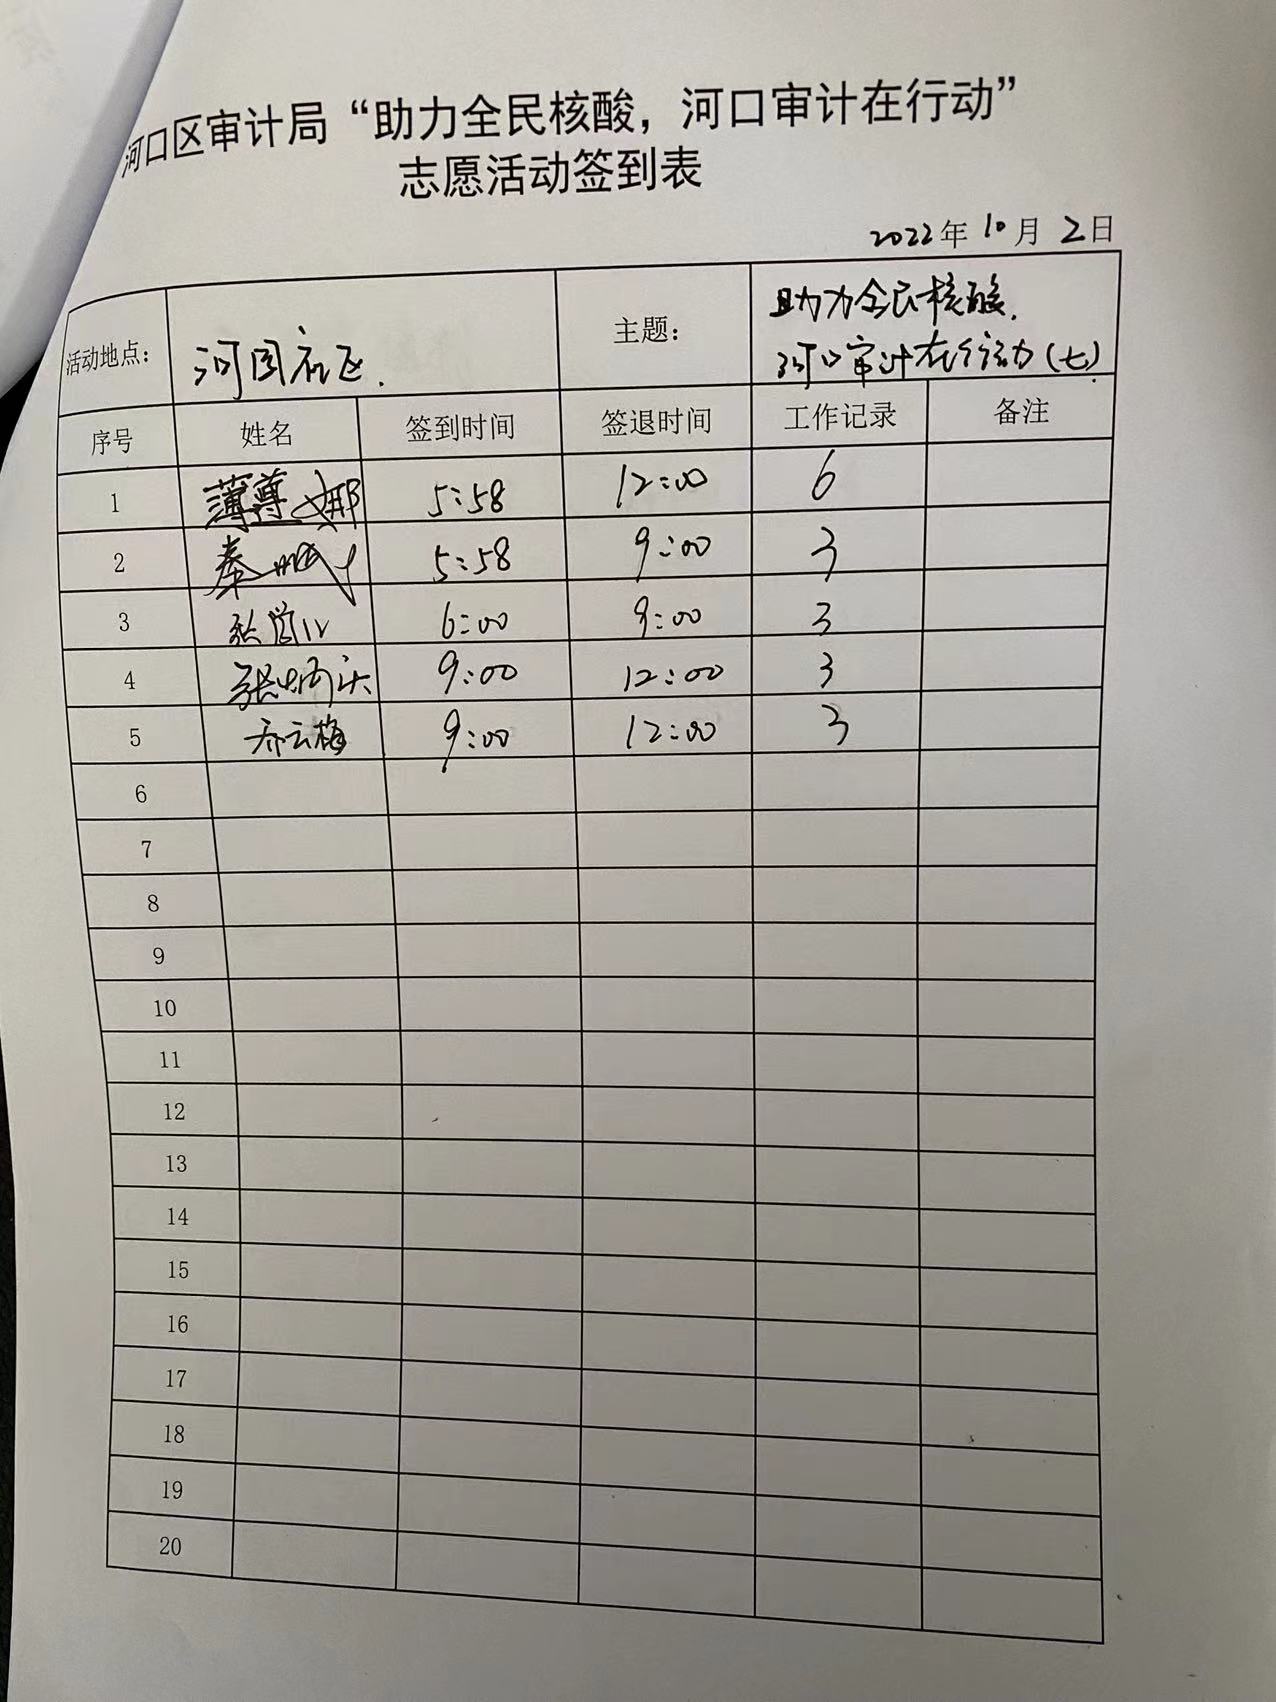 河口区审计局“助力全民核酸，河口审计在行动”
志愿活动签到表
2022年 10月 2日
活动地点： 社区. 主题： 助力全民核酸.
河口审计在行动(七)
序号 姓名 签到时间 签退时间 工作记录 备注
1 薄尊娜 5:58 12:00 6
2 秦 5:58 9:00 3
3 张 6:00 9:00 3
4 张 9:00 12:00 3
5 乔云梅 9:00 12:00 3
6
7
8
9
10
11
12
13
14
15
16
17
18
19
20